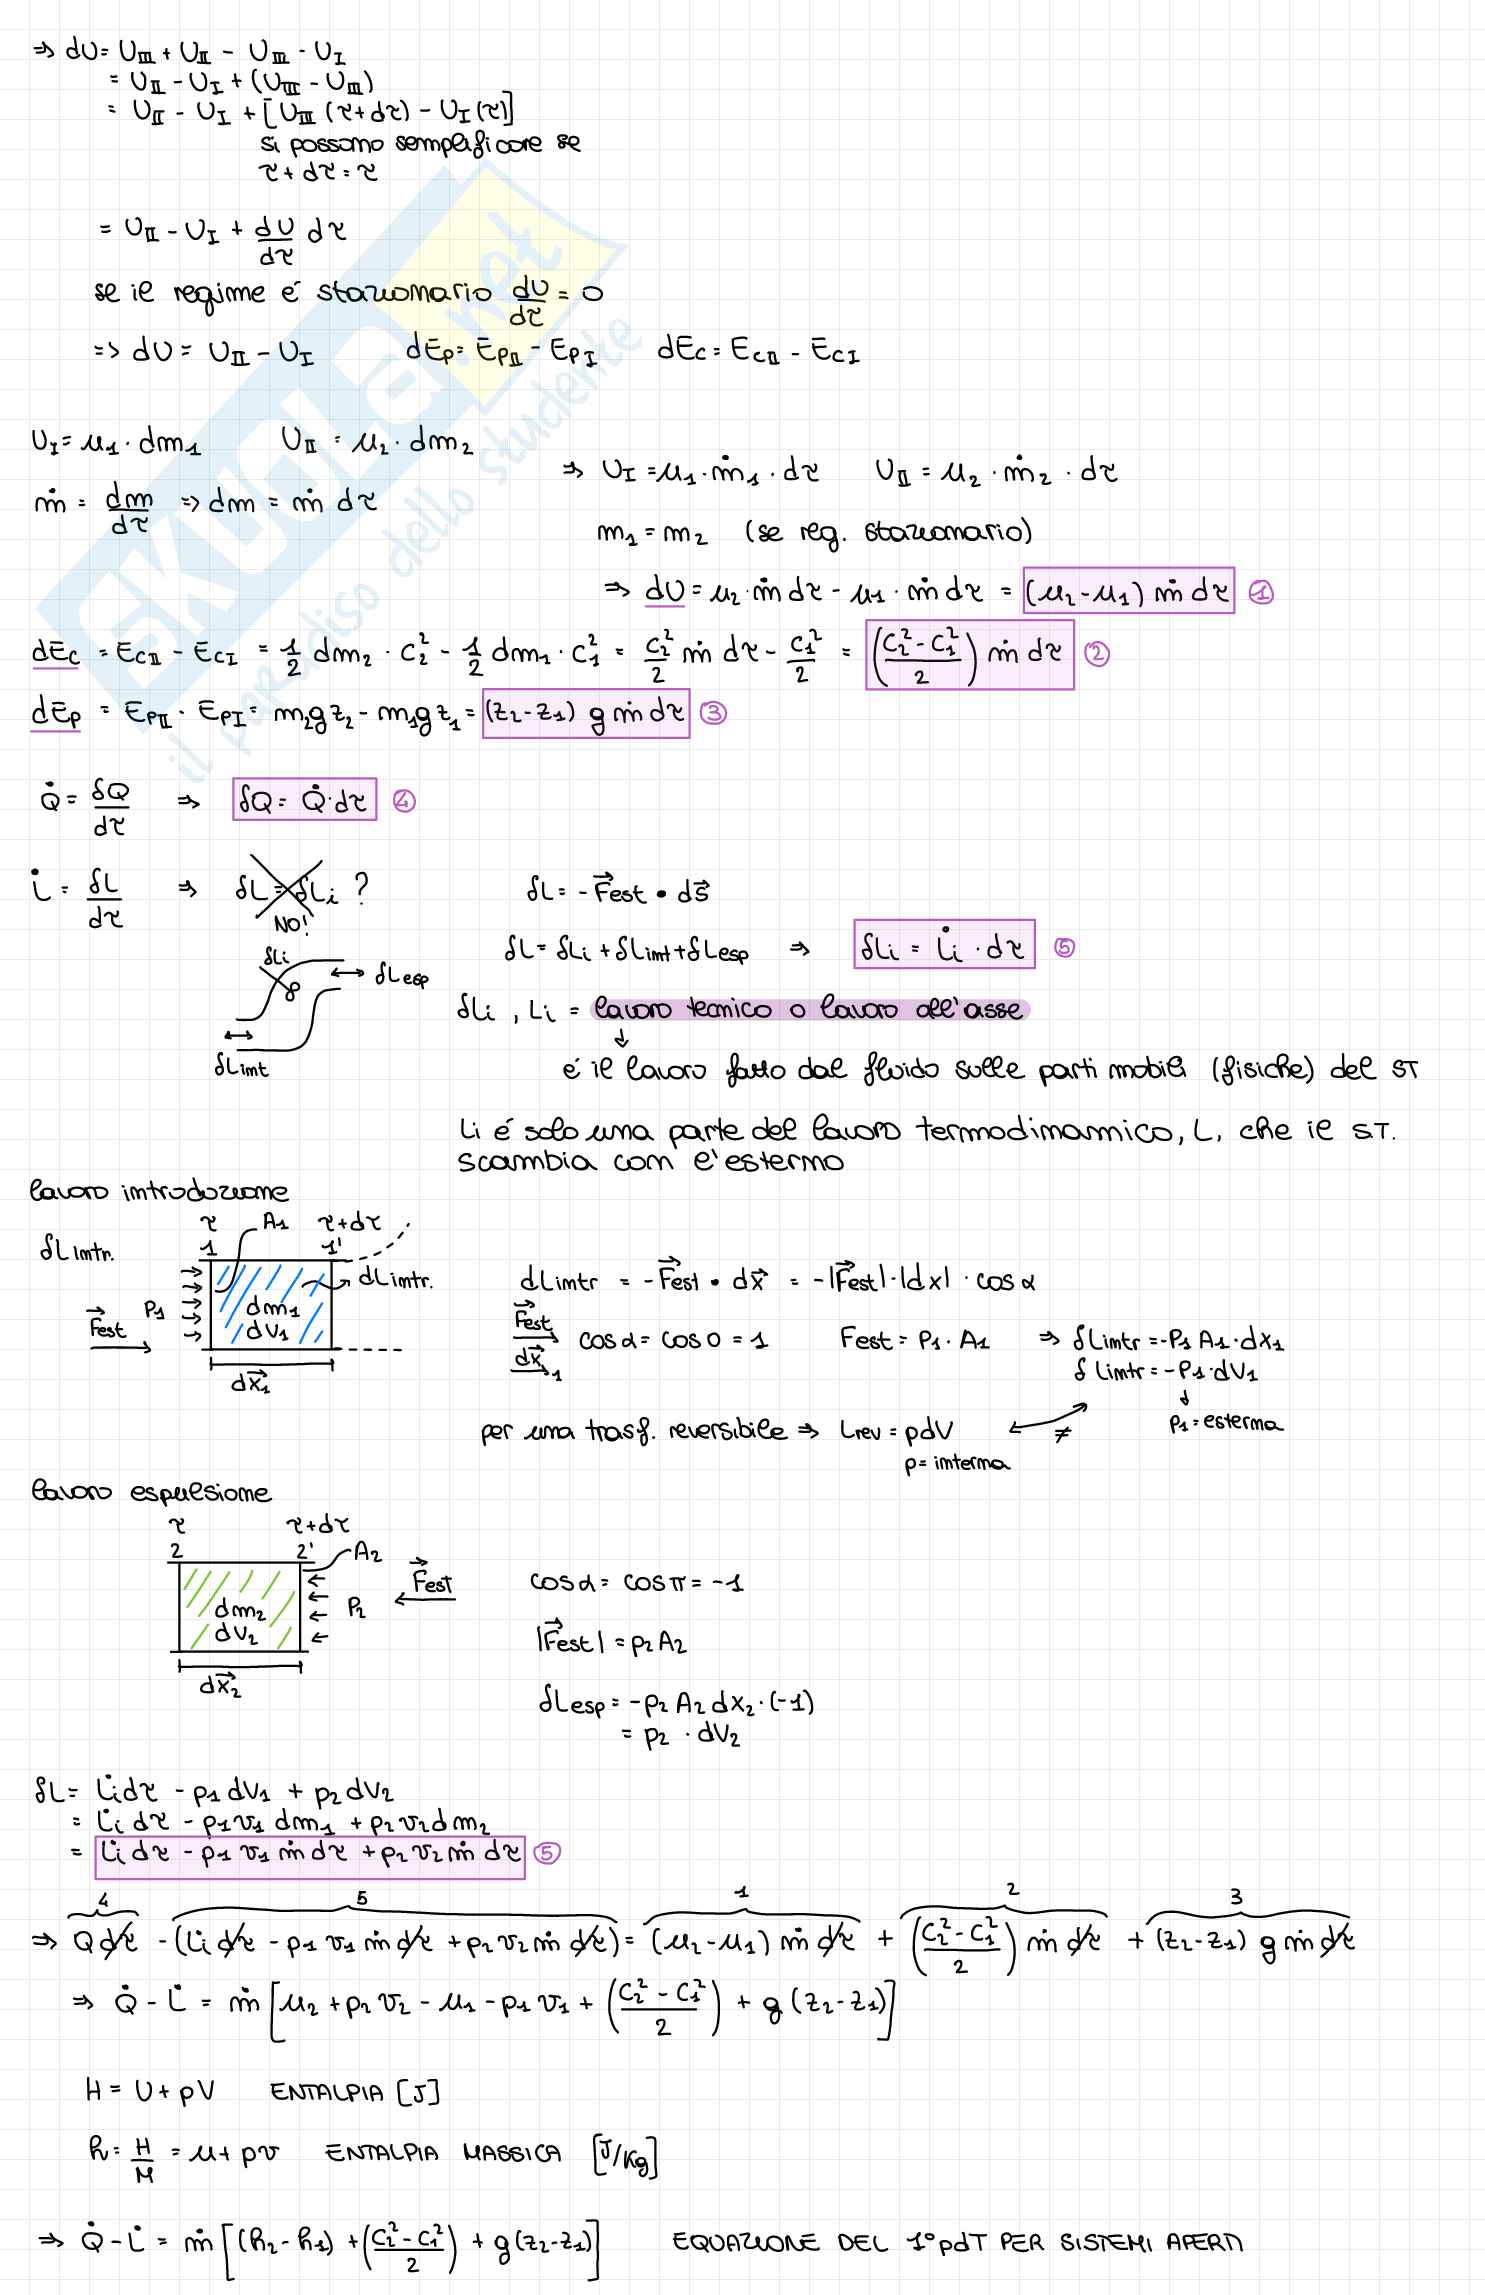 ⇒ dU = U_III + U_II - U_III - U_I
= U_II - U_I + (U_III - U_III)
= U_II - U_I + [U_III (τ+dτ) - U_I (τ)]
si possono semplificare se
τ + dτ = τ
= U_II - U_I + dU/dτ dτ
se il regime é stazionario dU/dτ = 0
=> dU = U_II - U_I dEp = Ep_II - Ep_I dEc = Ec_II - Ec_I
U_I = u₁ · dm₁ U_II = u₂ · dm₂
⇒ U_I = u₁ · ṁ₁ · dτ U_II = u₂ · ṁ₂ · dτ
ṁ = dm/dτ ⇒ dm = ṁ dτ
m₁ = m₂ (se reg. stazionario)
⇒ dU = u₂ · ṁ dτ - u₁ · ṁ dτ = (u₂ - u₁) ṁ dτ ①
dEc = Ec_II - Ec_I = 1/2 dm₂ · c₂² - 1/2 dm₁ · c₁² = c₂²/2 ṁ dτ - c₁²/2 = ((c₂² - c₁²)/2) ṁ dτ ②
dEp = Ep_II · Ep_I = m₂gz₂ - m₁gz₁ = (z₂ - z₁) g ṁ dτ ③
Q̇ = δQ/dτ ⇒ δQ = Q̇ · dτ ④
L̇ = δL/dτ ⇒ δL = δLi ? δL = - F⃗est • ds⃗
NO!
δL = δLi + δLint + δLesp ⇒ δLi = L̇i · dτ ⑤
δLi
δLesp
δLint
δLi , Li = lavoro tecnico o lavoro all'asse
↓
é il lavoro fatto dal fluido sulle parti mobili (fisiche) del ST
Li é solo una parte del lavoro termodinamico, L, che il ST.
scambia con l'esterno
lavoro introduzione
τ A₁ τ+dτ
δLintr. 1 1'
dLintr.
F⃗est P₁ dm₁
dV₁
dx⃗₁
dLintr = - F⃗est • dx⃗ = -|F⃗est|·|dx| · cos α
F⃗est
dx⃗₁ cos α = cos 0 = 1 Fest = P₁ · A₁ ⇒ δLintr = -P₁ A₁ · dx₁
δLintr = -P₁ · dV₁
↓
P₁ = esterna
per una trasf. reversibile ⇒ Lrev = pdV ≠
p = interna
lavoro espulsione
τ τ+dτ
2 2' A₂
F⃗est
P₂
dm₂
dV₂
dx⃗₂
cos α = cos π = -1
|F⃗est| = p₂ A₂
δLesp = -p₂ A₂ dx₂ · (-1)
= p₂ · dV₂
δL = L̇i dτ - p₁ dV₁ + p₂ dV₂
= L̇i dτ - p₁ v₁ dm₁ + p₂ v₂ dm₂
= L̇i dτ - p₁ v₁ ṁ dτ + p₂ v₂ ṁ dτ ⑤
4 5 1 2 3
⇒ Q dτ - (L̇i dτ - p₁ v₁ ṁ dτ + p₂ v₂ ṁ dτ) = (u₂ - u₁) ṁ dτ + ((c₂² - c₁²)/2) ṁ dτ + (z₂ - z₁) g ṁ dτ
⇒ Q̇ - L̇ = ṁ [u₂ + p₂ v₂ - u₁ - p₁ v₁ + ((c₂² - c₁²)/2) + g (z₂ - z₁)]
H = U + pV ENTALPIA [J]
h = H/M = u + pv ENTALPIA MASSICA [J/Kg]
⇒ Q̇ - L̇ = ṁ [(h₂ - h₁) + ((c₂² - c₁²)/2) + g (z₂ - z₁)] EQUAZIONE DEL 1° pdT PER SISTEMI APERTI
SKUOLA.net
il paradiso dello studente